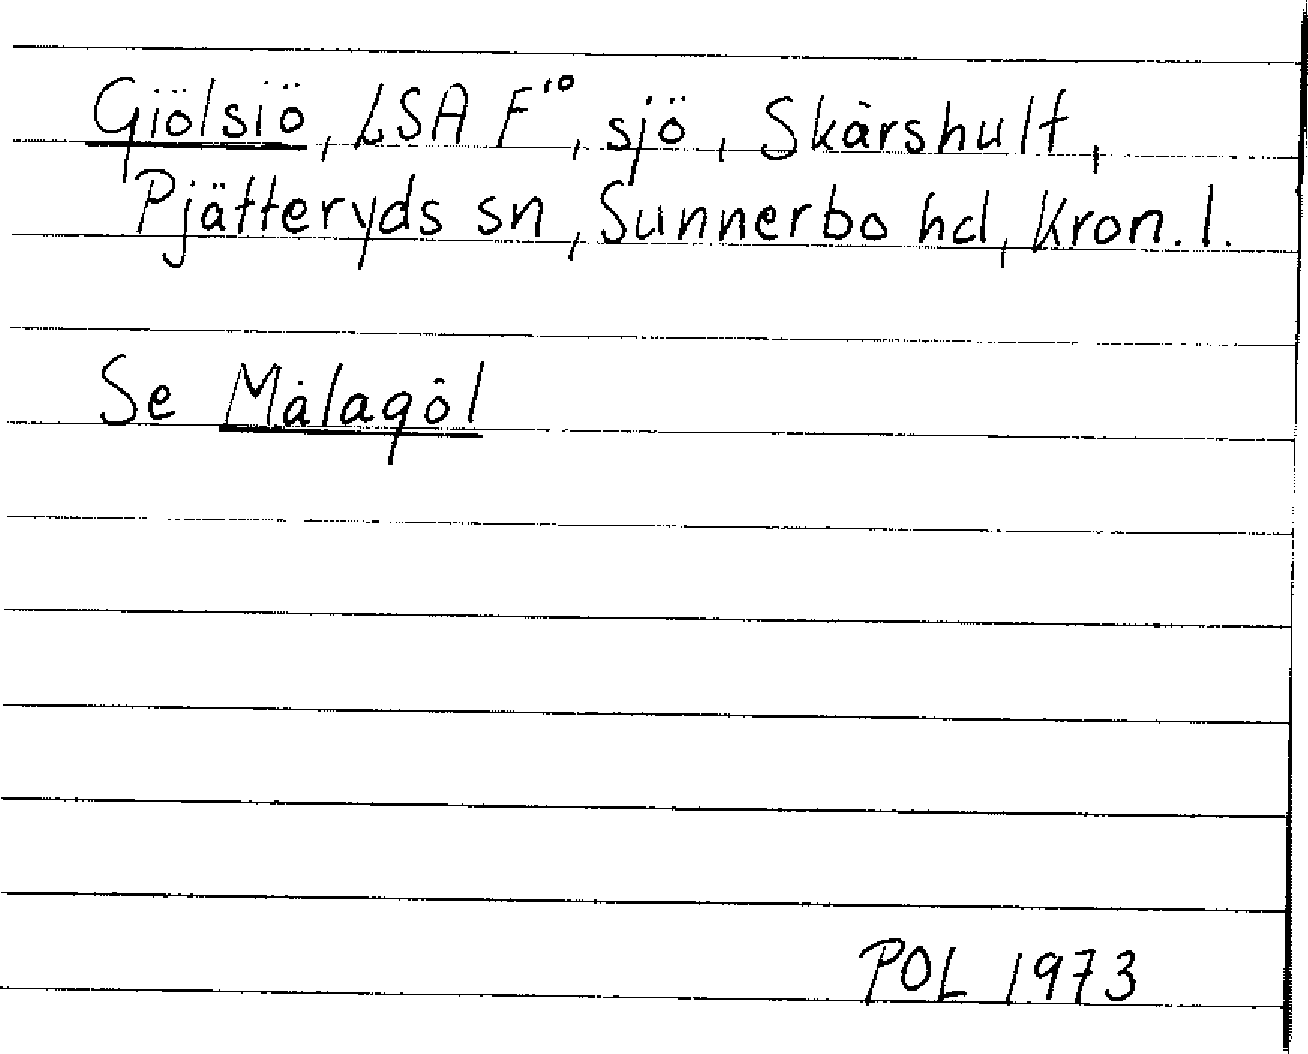 Gjölsiö, LSA F¹⁰, sjö, Skärshult,
Pjätteryds sn, Sunnerbo hd, Kron. l.
Se Målagöl
POL 1973